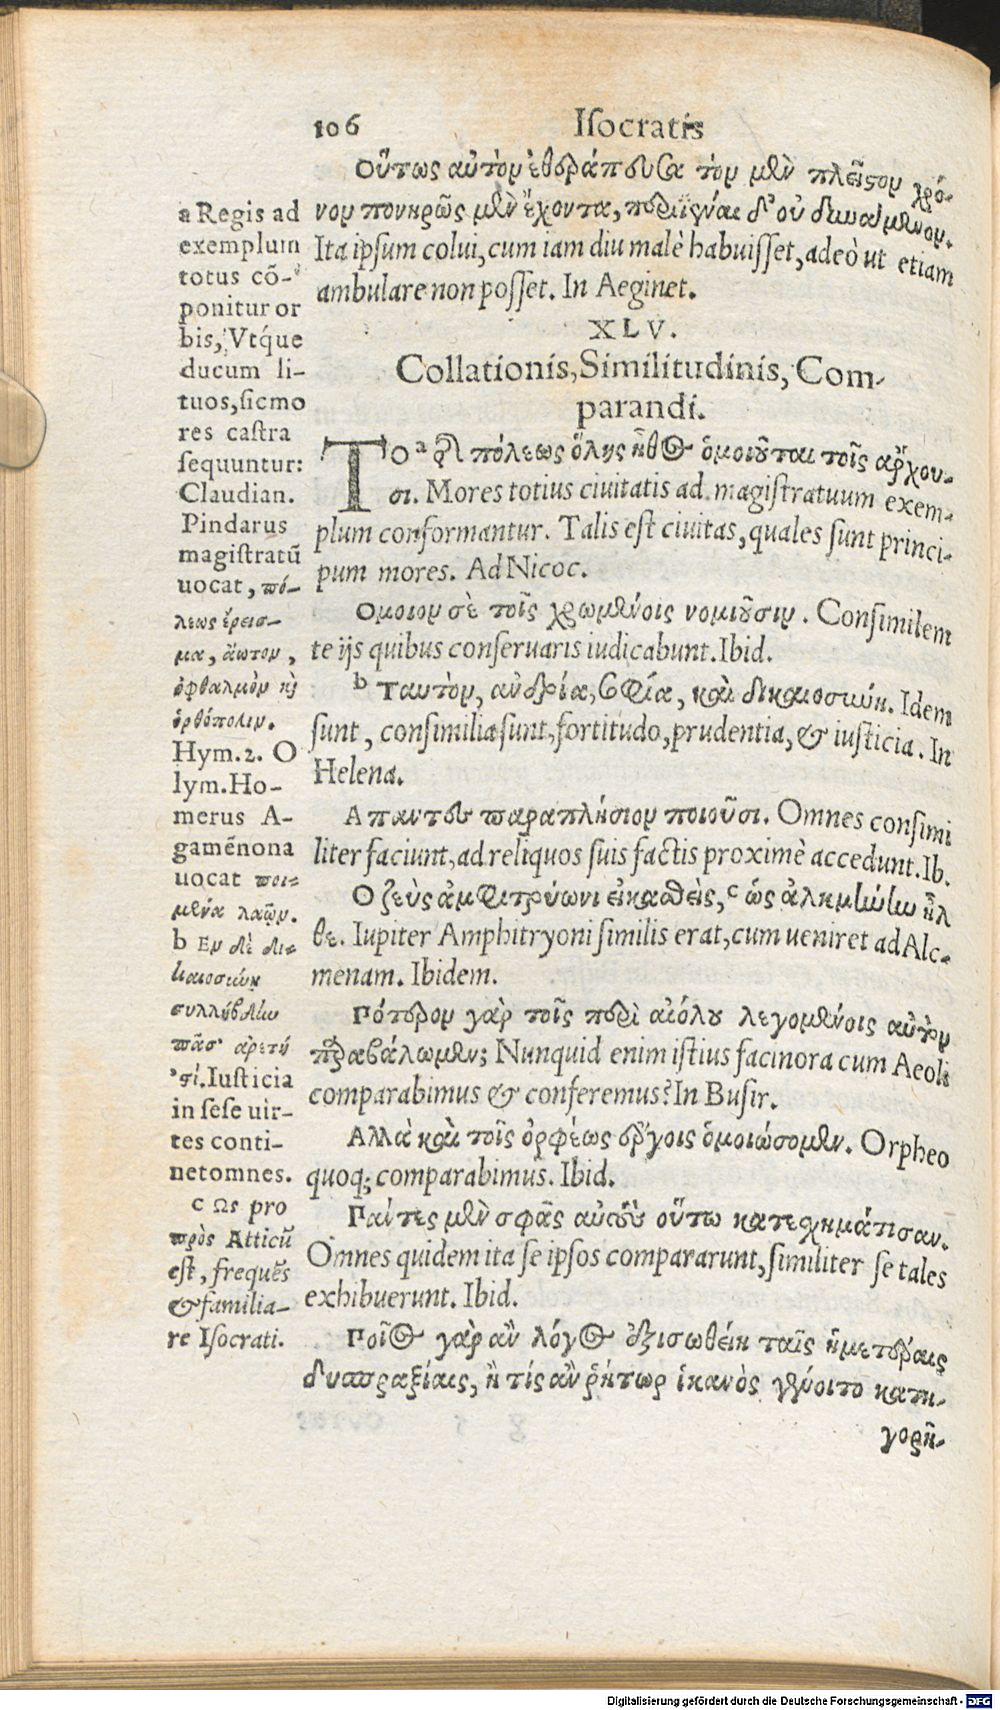 106 Iſocratis
Οὕτως αὐτὸν ἐθεράπευσα τὸν μὲν πλεῖστον χρό-
νον πονηρῶς μὲν ἔχοντα, περιϊέναι δ' οὐ δυναμένον.
Ita ipſum colui, cum iam diu malè habuiſſet, adeò ut etiam
ambulare non poſſet. In Aeginet.
XLV.
Collationis, Similitudinis, Com-
parandi.
ΤΟ ᵃ τῆς πόλεως ὅλης ἦθος ὁμοιοῦται τοῖς ἄρχου-
σι. Mores totius ciuitatis ad magiſtratuum exem-
plum conformantur. Talis eſt ciuitas, quales ſunt princi-
pum mores. Ad Nicoc.
Ομοιον σὲ τοῖς χρωμένοις νομιοῦσιν. Conſimilem
te ijs quibus conſeruaris iudicabunt. Ibid.
ᵇ Ταυτὸν, ανδρία, σοφία, καὶ δικαιοσύνη. Idem
ſunt, conſimilia ſunt, fortitudo, prudentia, & iuſticia. In
Helena.
Απαντες παραπλήσιον ποιοῦσι. Omnes conſimi
liter faciunt, ad reliquos ſuis factis proximè accedunt. Ib.
Ο ζεὺς ἀμφιτρύωνι εἰκασθεὶς, ᶜ ὡς ἀλκμήνην ἦλ
θε. Iupiter Amphitryoni ſimilis erat, cum ueniret ad Alc-
menam. Ibidem.
Πότερον γὰρ τοῖς περὶ αἰόλου λεγομένοις αὐτὸν
παραβάλωμεν; Nunquid enim iſtius facinora cum Aeoli
comparabimus & conferemus? In Buſir.
Αλλὰ καὶ τοῖς ὀρφέως ἔργοις ὁμοιώσομεν. Orpheo
quoq; comparabimus. Ibid.
Πάντες μὲν σφᾶς αὐτοὺς οὕτω κατεχημάτισαν.
Omnes quidem ita ſe ipſos compararunt, ſimiliter ſe tales
exhibuerunt. Ibid.
Ποῖος γὰρ ἂν λόγος ἐξισωθείη ταῖς ἡμετέραις
δυσπραξίαις, ἢ τίς ἂν ῥήτωρ ἱκανὸς γένοιτο κατη-
γορῆ-
a Regis ad
exemplum
totus cõ-
ponitur or
bis, Vtq́ue
ducum li-
tuos, ſic mo
res caſtra
ſequuntur:
Claudian.
Pindarus
magiſtratũ
uocat, πό-
λεως ἔρεισ-
μα, ἄωτον,
ὀφθαλμὸν καὶ
ὀρθόπολιν.
Hym. 2. O
lym. Ho-
merus A-
gamẽnona
uocat ποι-
μένα λαῶν.
b Εν δὲ δι-
καιοσύνη
συλλήβδην
πᾶσ' αρετή
'στι. Iuſticia
in ſeſe uir-
tes conti-
net omnes.
c Ως pro
πρὸς Atticũ
eſt, frequẽs
& familia-
re Iſocrati.
Digitalisierung gefördert durch die Deutsche Forschungsgemeinschaft - DFG